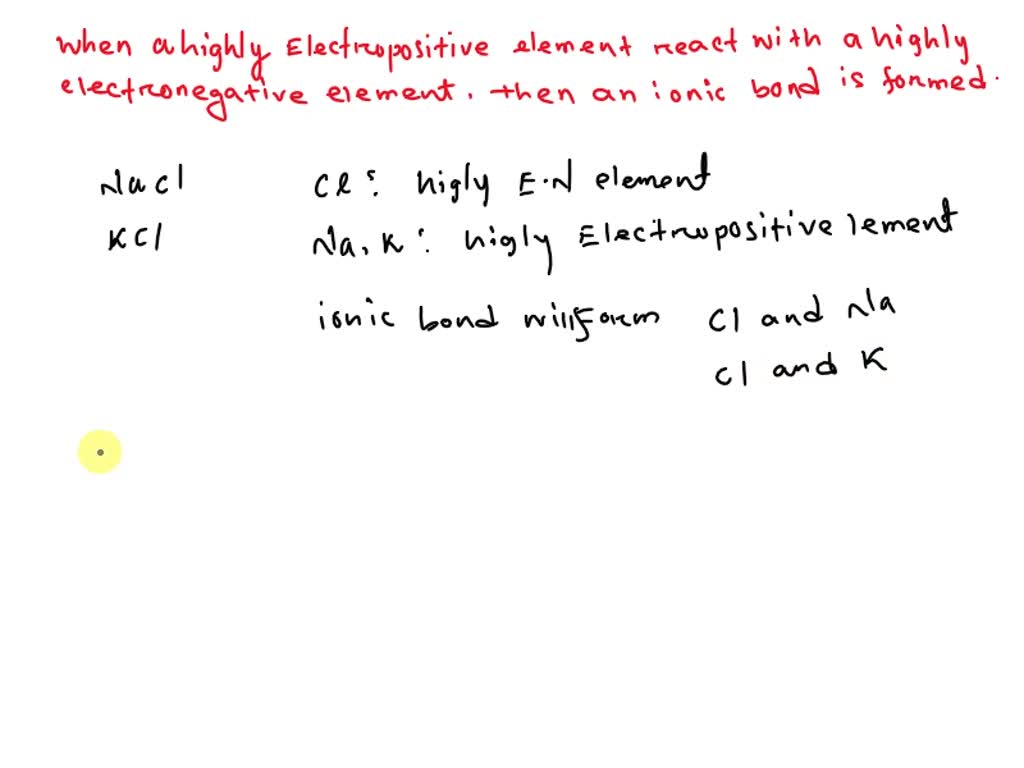 When a highly Electropositive element react with a highly
electronegative element. then an ionic bond is formed.
NaCl Cl : higly E.N element
KCl Na, K : higly Electropositive lement
ionic bond will form Cl and Na
Cl and K